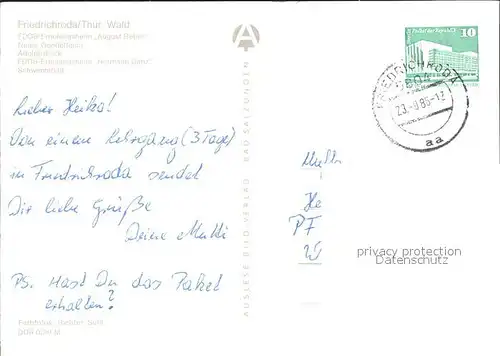 Friedrichroda/Thür. Wald
FDGB-Erholungsheim „August Bebel“
Neues
FDGB-Erholungsheim „Hermann Danz“
Schwimmbad
Lieber Heiko!
Von einem Lehrgang (3 Tage)
in Friedrichroda sendet
Dir liebe Grüße
Deine Mutti
PS. Hast Du das Paket
erhalten?
AUSLESE BILD-VERLAG BAD SALZUNGEN
Palast der Republik
10
FRIEDRICHRODA
5804
aa
He
PF
privacy protection
Datenschutz